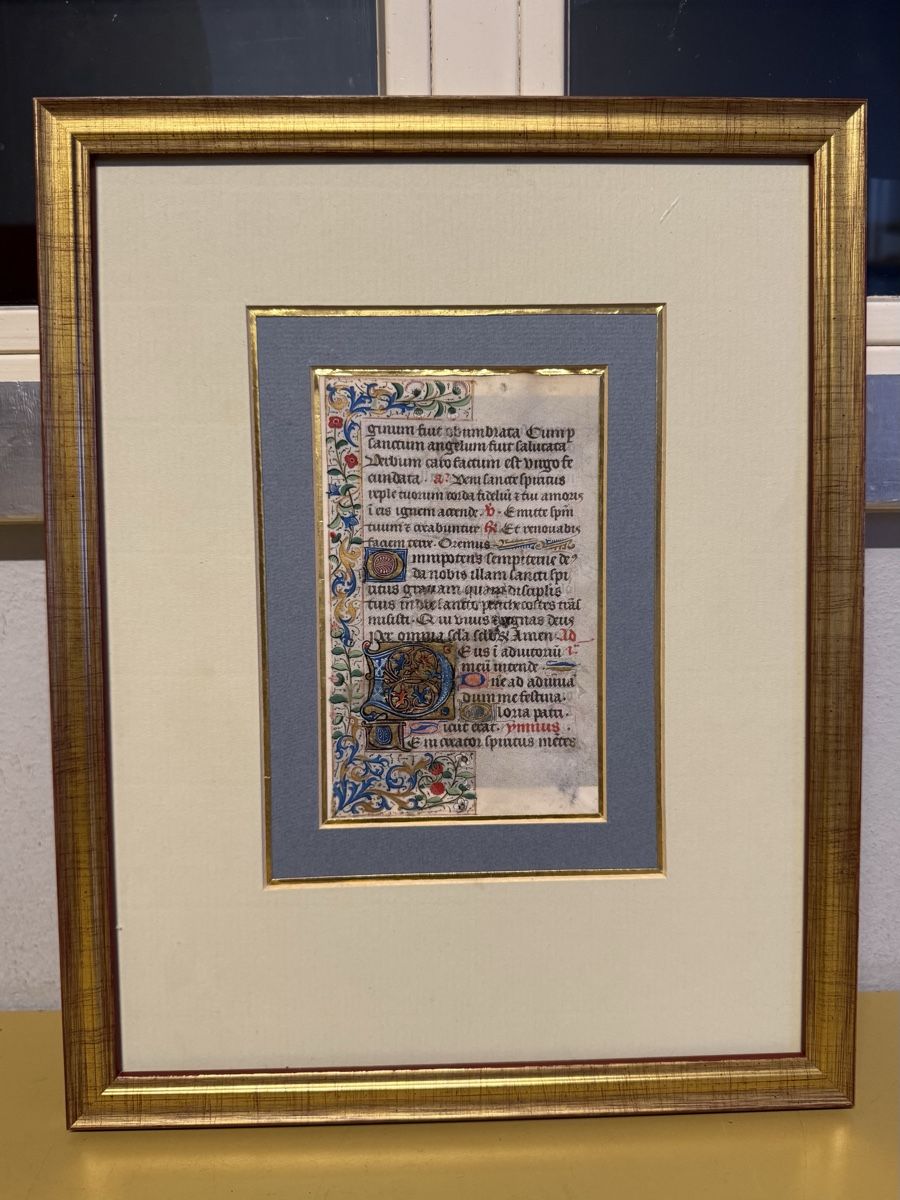 ginum fuit obumbrata Cump
sanctum angelum fuit salutata
Verbum caro factum est virgo fe
cundata. a. Veni sancte spiritus
reple tuorum corda fideliū ⁊ tui amoris
ī eis ignem accende. v. Emitte spm̄
tuum ⁊ creabuntur ℟ Et renouabis
faciem terre. Oremus
Omnipotens sempiterne de⁹
da nobis illam sancti spi
ritus gratiam quam discipulis
tuis in die sancto penthecostes
misisti. Qui viuis ⁊ regnas deus
Per omnia scla sclo℟ Amen. Ad
Deus ī adiutoriū
meū intende.
Dn̄e ad adiuuā
dum me festina.
Gloria patri.
Sicut erat. ymnus.
Veni creator spiritus mētes